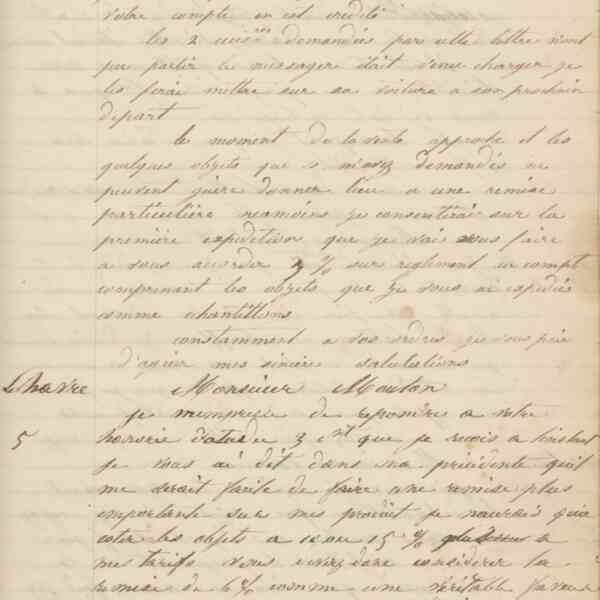 votre compte en est crédité
les 2 demandés par cette lettre n'ont
pu partir le messager était venu charger je
les ferai mettre sur sa voiture a son prochain
départ
le moment de la vente approche et les
quelques objets que m'avez demandés ne
peuvent guère donner lieu a une remise
particulière neamoins je consentirai sur la
première expédition que je vais vous faire
a vous accorder % sur règlement un compt
comprenant les objets que je vous ai expédiés
comme échantillons
constamment a vos ordres je vous prie
d'agréer mes sincères salutations
Le havre Monsieur Mouton
je m'empresse de repondre a votre
5 honorée datée de 3 cnt que je recois a l'instant
je vous ai dit dans ma précédente qu'il
me serait facile de faire une remise plus
importante sur mes produit je naurais qu'a
coter les objets a 10 ou 15 % plus a
mes tarifs vous devez donc considérer la
remise de 6% comme une véritable faveur